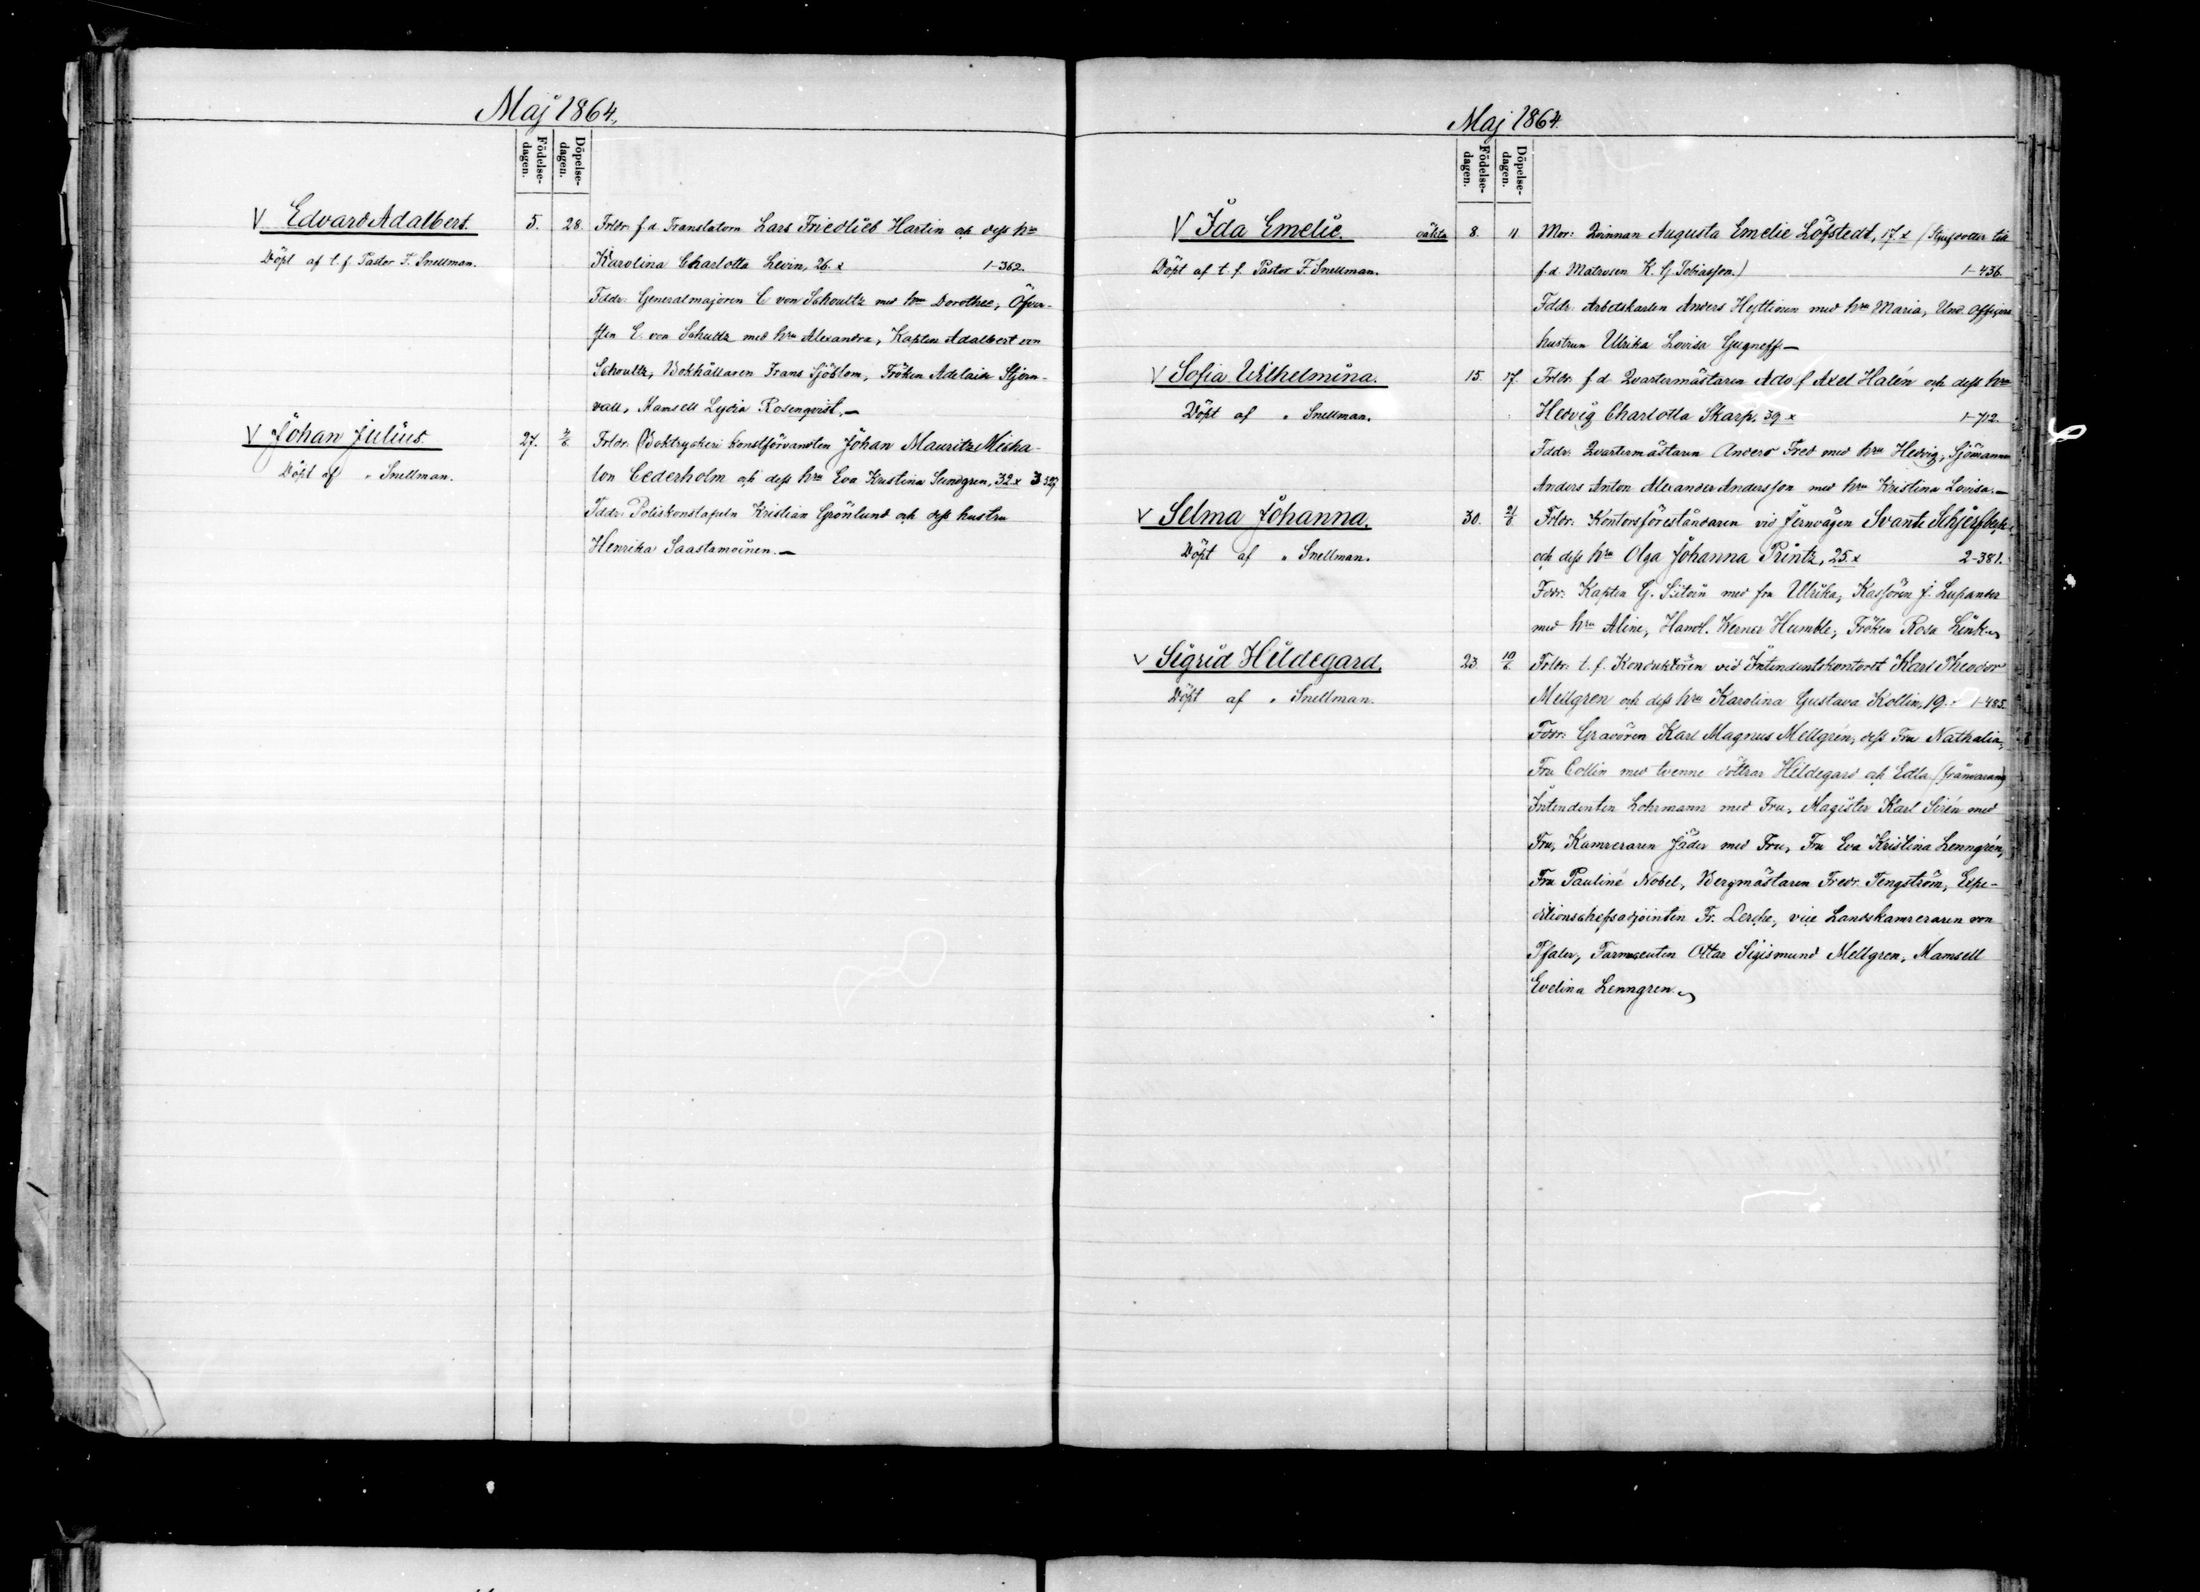 Maj 1864.
Födelse-
dagen.
Döpelse-
dagen.
V Edvard Adalbert. 5. 28. Frldr. f.d. Translatorn Lars Friedlieb Hartin och dess hru
Döpt af t.f. Pastor F. Snellman. Karolina Charlotta Levin, 26. x 1-362.
Fddr: Generalmajoren C von Schoultz med hru Dorothee, Öfver-
sten C. von Schultz med hru Alexandra, Kapten Adalbert von
Schoultz, Bokhållaren Frans Sjöblom, Fröken Adelaide Stjern-
vall, Mamsell Lydia Rosenqvist.—
V Johan Julius. 27. Frldr. Boktryckeri konstförvandten Johan Mauritz Micka-
Döpt af " Snellman. lon Cederholm och dess hru Eva Kristina Sundgren, 32 x 3
Fddr: Poliskonstapeln Kristian Grönlund och dess hustru
Henrika Saastamoinen.—
Maj 1864.
Födelse-
dagen.
Döpelse-
dagen.
V Ida Emelie. oäkta 8. 11 Mor: Qvinnan Augusta Emelie Löfstedt, 17 x (Styfdotter till
Döpt af t.f. Pastor F. Snellman. f.d. Matrosen K. G. Tobiasson.) 1-436.
Fddr. Arbetskarlen Anders Hyttinen med hru Maria, Und. Officers
hustrun Ulrika Lovisa Gugneff.—
V Sofia Wilhelmina. 15. 17. Frldr f.d. Qvartermästaren Adolf Axel Halén och dess hru
Döpt af " Snellman. Hedvig Charlotta Skarp, 39 x 1-712.
Fddr: Qvartermästaren Anders Fred med hru Hedvig, Sjömannen
Anders Anton Alexander Andersson med hru Kristina Lovisa.—
V Selma Johanna. 30. 21/6 Frldr: Kontorsföreståndaren vid jernvägen Svante
Döpt af " Snellman. och dess hru Olga Johanna Printz, 25. x 2-381.
Fddr: Kapten G. med fru Ulrika, Kassören J. Lupander
med hru Aline, Handl. Werner Humble, Fröken Rosa Link.
V Sigrid Hildegard. 23 10/6 Frldr: t.f. Konduktören vid Intendentskontoret Karl Theodor
Döpt af " Snellman. Mellgren och dess hru Karolina Gustava Kollin, 19. 1-485.
Fddr: Gravören Karl Magnus Mellgrén, dess Fru Nathalia,
Fru Collin med tvenne döttrar Hildegard och Edla (frånvarande)
Intendenten Lohrmann med Fru, Magister Karl Sirén med
Fru, Kamreraren Jäder med Fru, Fru Eva Kristina Lenngrén,
Fru Pauline Nobel, Bergmästaren Fredr. Tengström, Expe-
ditionschefsadjointen Fr. Lerche, vice Landskamreraren von
Pfaler, Farmaceuten Ottar Sigismund Mellgren, Mamsell
Evelina Lenngren.